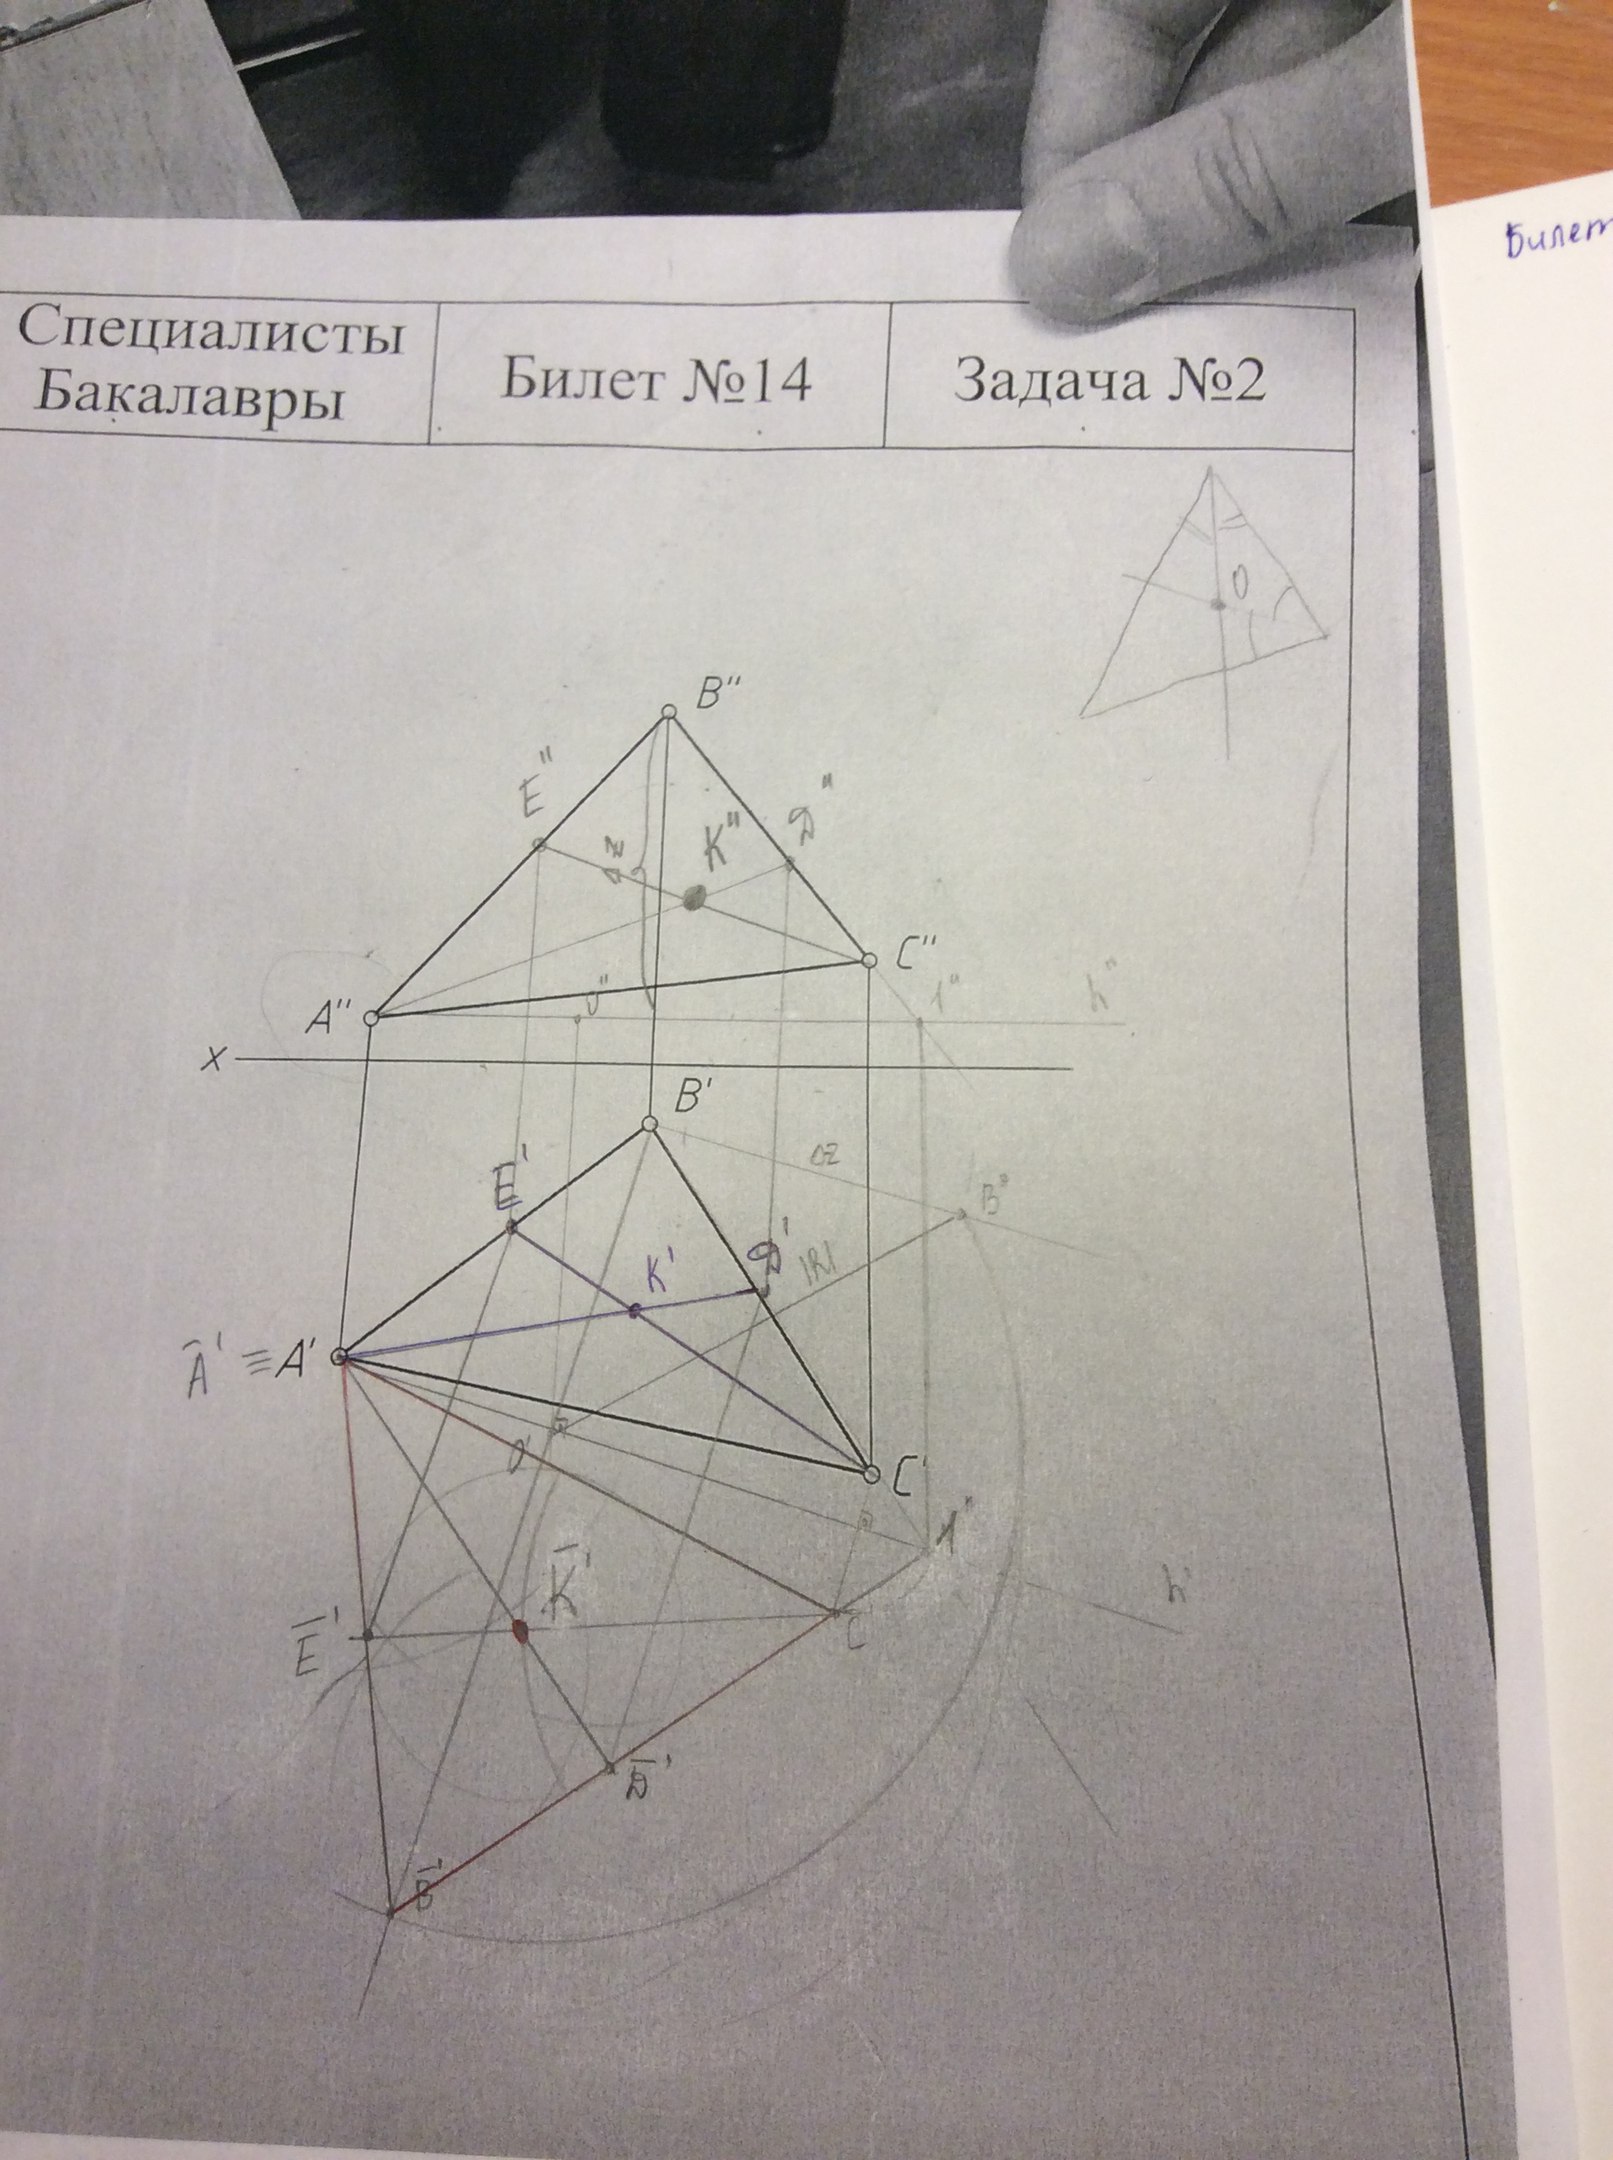 Билет
Специалисты
Бакалавры
Билет №14
Задача №2
O
B"
E"
D"
K"
Δz
C"
A"
O"
1"
h"
x
B'
E'
Δz
B°
K'
D'
|R|
Ā' ≡ A'
O'
C'
1"
K̄'
h'
Ē'
C
D̄'
B̄'